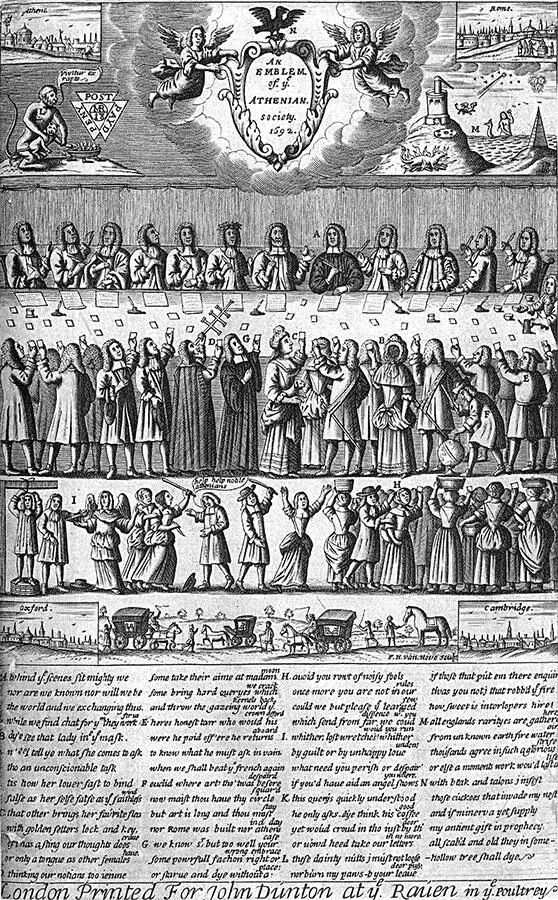 Athens.
N
Rome.
AN
EMBLEM
of yᵉ
ATHENIAN
Society.
1692.
vivitur ex
PENY
POST
PAYD
M
A
D
G
C
B
E
F
help help noble
Athenians
I
H
Oxford.
Cambridge.
F. H. van. Hove Sculp:
A Behind yᵉ scenes sit mighty we
nor are we known nor will we be
the world and we exchanging thus
while we find chat for yᵐ they work for us
B d'ye see that lady in yᵉ mask
n'ell tell ye what she comes to ask
tis an unconscionable task
tis how her lover fast to bind
false as her selfe false as yᵉ faithless wind
C that other brings her fav'rite flea
with golden fetters lock and key
has a sting our thoughts does
or only a tongue as other females have
D thinking our notions too
some take their aime at madam moon
some bring hard queryes which we crack
and throw the gazeing world yᵉ kernels back
E heres honest tarr who woud his crown afford
were he paid off ere he returns aboard
to know what he must ask in vain
when we shall beat yᵉ french again
F euclid where art tho'twas
now maist thou have thy circle squar'd
but art is long and thou must stay
nor Rome was built nor athens in a day
G we know sʳ but too well your
some powrfull fachion right or wrong embrace
or starue and dye without a place:
H avoid you rout of noisy fools
once more you are not in our rules
could we but please yᵉ learned few
which send from far we coud dispence wᵗʰ you
I whither lost wretches whither would you run
by guilt or by unhappy love undone
what need you perish or despair
if you'd have aid an angel shows you where.
K this query's quickly understood
he only asks d'ye think his coffee
yet woud croud in tho
or woud heed take our letters
L these dainty nutts i must not loose
nor burn my paws-b your leave dear puss.
if those that put em there enquire
twas you not i that robb'd yᵉ fire
how sweet is interlopers hire
M all englands rarityes are gather'd here
from unknown earth fire water
thousands agree in such a glorious strife
or else a moments work woud last a life
N with beak and talons i infest
those cuckoes that invade my nest
and if minerva yet supply
my antient gift in prophecy
all scabb'd and old they in some
hollow tree shall dye
London Printed For John Dunton at yᵉ Raven in yᵉ Poultrey